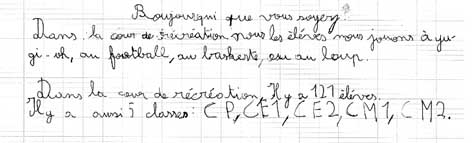 Boujourqni que vous soyez.
Dans la cour de récréation nous les élèves nous jouons à yu-
gi-oh, au football, au baskette, ou au loup.
Dans la cour de récréation, Il y a 121 élèves.
Il y a aussi 5 classes: CP, CE1, CE2, CM1, CM2.